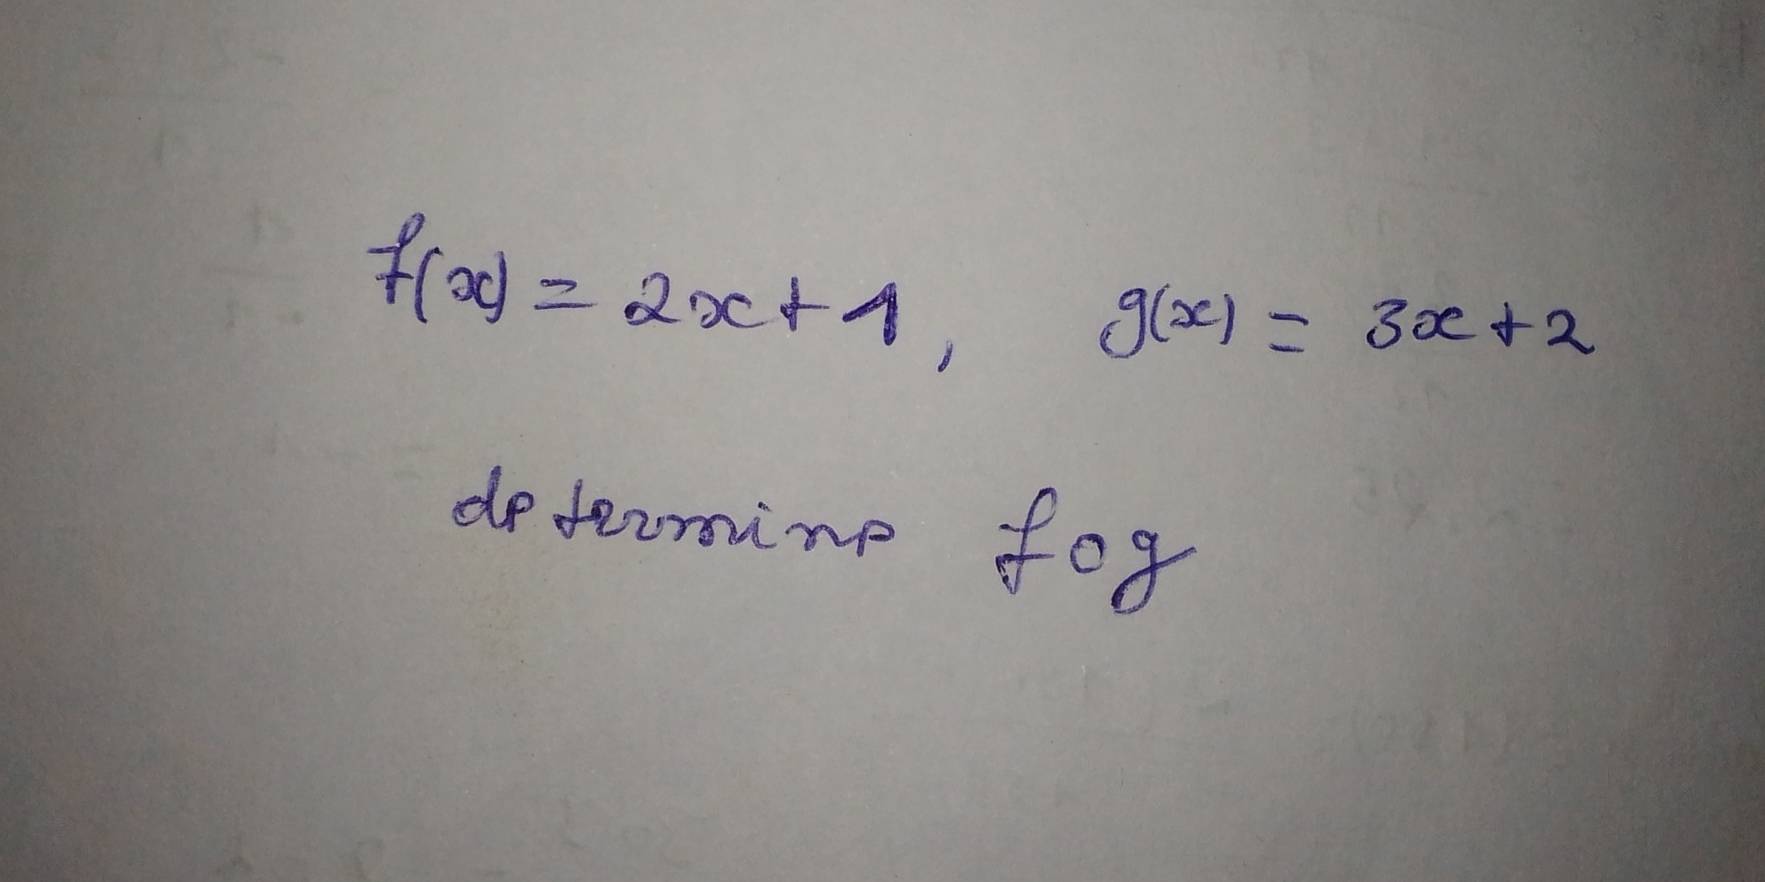 f(x) = 2x + 1, g(x) = 3x + 2
determine fog